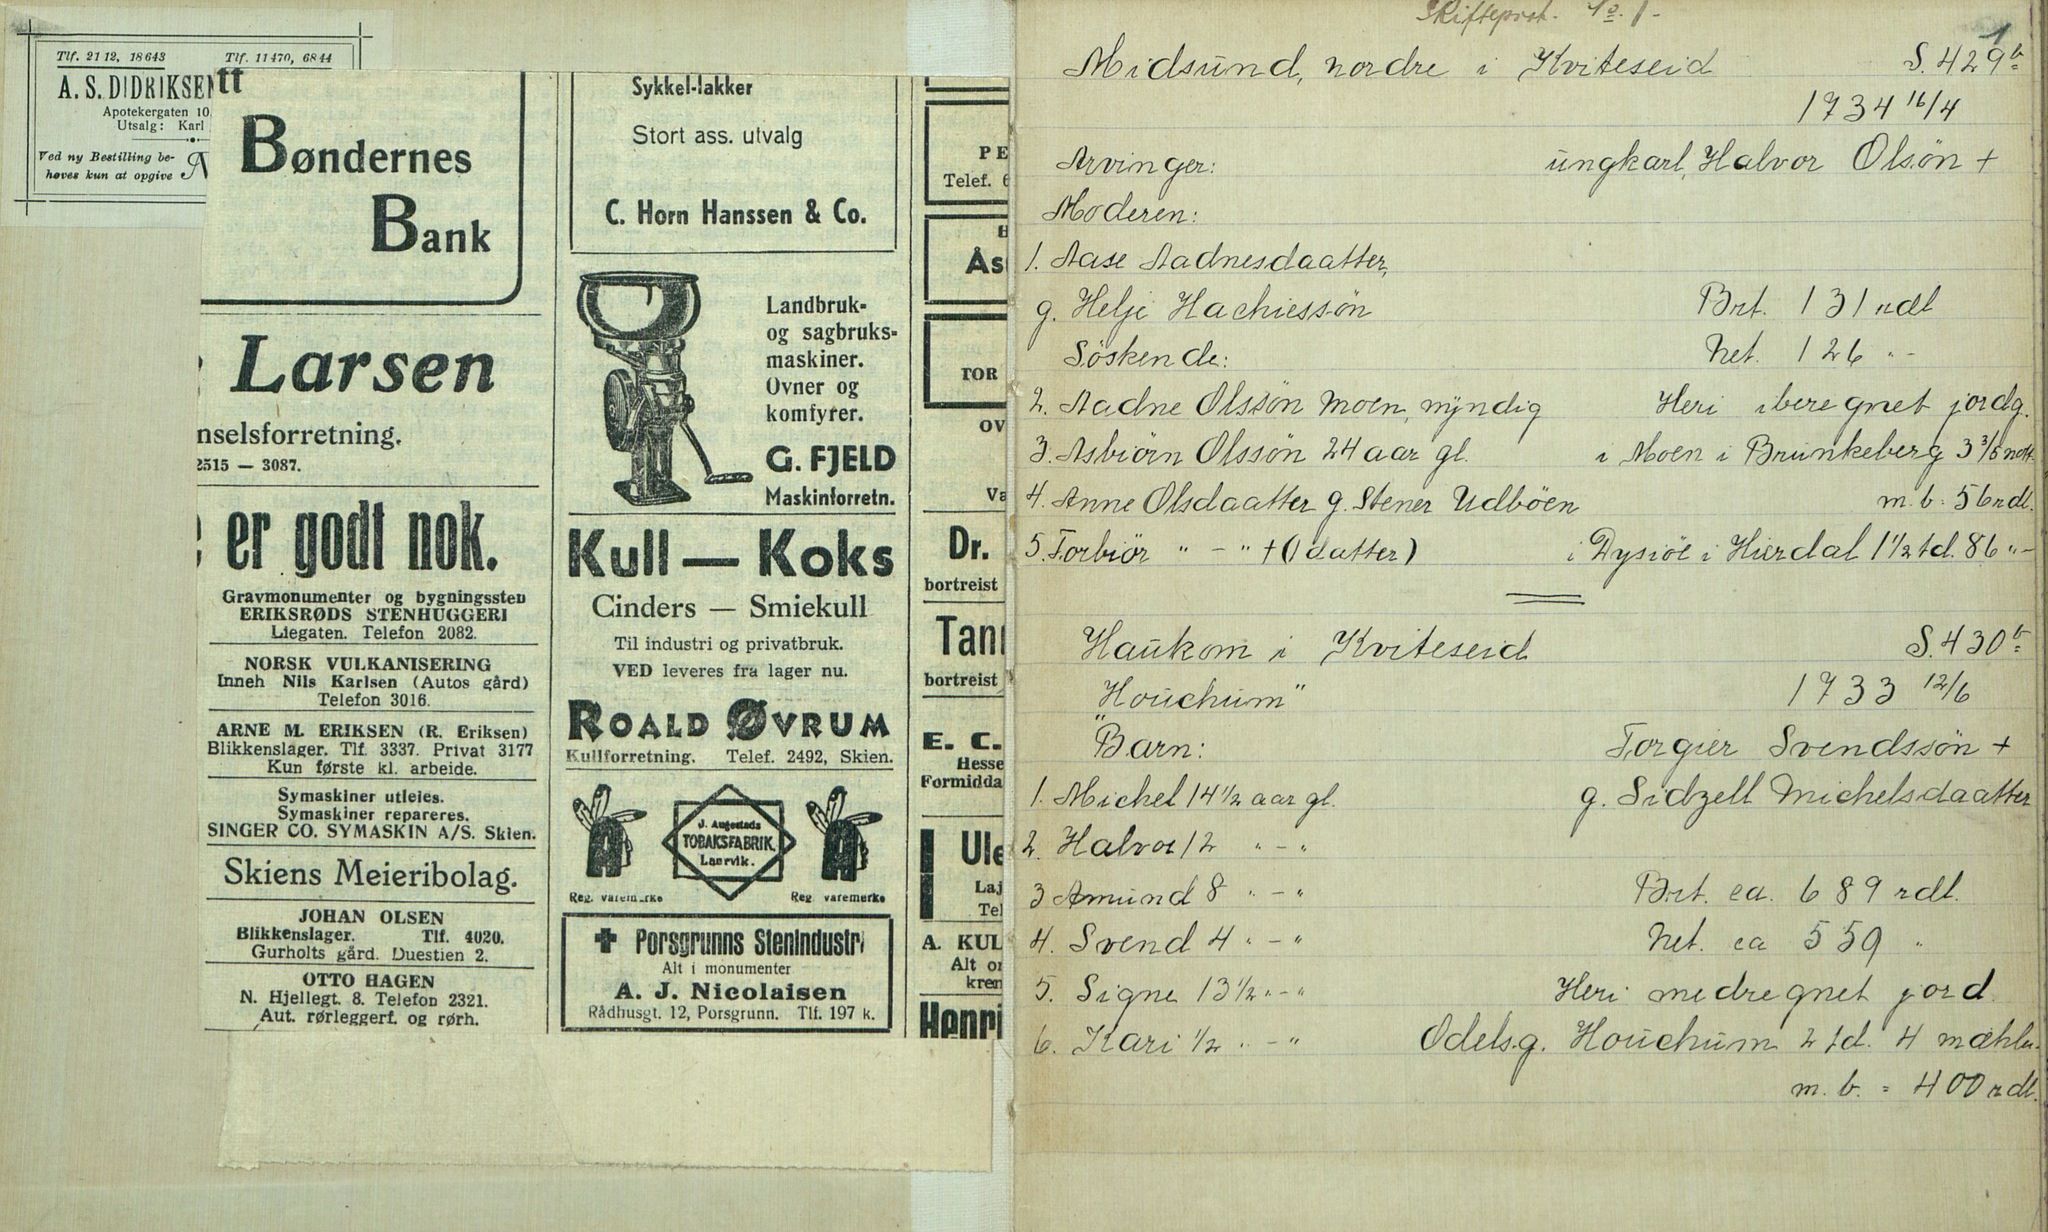 Tlf. 2112, 18643 Tlf. 11470, 6844
A. S. DIDRIKSEN
Apotekergaten 10.
Utsalg: Karl
Ved ny Bestilling be-
høves kun at opgive
tt
Bøndernes
Bank
Larsen
nselsforretning.
2515 — 3087.
er godt nok.
Gravmonumenter og bygningssten
ERIKSRØDS STENHUGGERI
Liegaten. Telefon 2082.
NORSK VULKANISERING
Inneh Nils Karlsen (Autos gård)
Telefon 3016.
ARNE M. ERIKSEN (R. Eriksen)
Blikkenslager. Tlf. 3337. Privat 3177
Kun første kl. arbeide.
Symaskiner utleies.
Symaskiner repareres.
SINGER CO. SYMASKIN A/S. Skien.
Skiens Meieribolag.
JOHAN OLSEN
Blikkenslager. Tlf. 4020.
Gurholts gård. Duestien 2.
OTTO HAGEN
N. Hjellegt. 8. Telefon 2321.
Aut. rørleggerf. og rørh.
Sykkel-lakker
Stort ass. utvalg
C. Horn Hanssen & Co.
Landbruk-
og sagbruks-
maskiner.
Ovner og
komfyrer.
G. FJELD
Maskinforretn.
Kull — Koks
Cinders — Smiekull
Til industri og privatbruk.
VED leveres fra lager nu.
ROALD ØVRUM
Kullforretning. Telef. 2492, Skien.
J. Augestads
TOBAKSFABRIK.
Laurvik.
Reg. varemerke Reg varemerke
Porsgrunns Stenindustri
Alt i monumenter
A. J. Nicolaisen
Rådhusgt. 12, Porsgrunn. Tlf. 197 k.
PE
Telef. 6
Ås
TOR
OV
Va
Dr.
bortreist
Tann
bortreist
E. C.
Hesse
Formidda
Ule
Laj
Tel
A. KUL
Alt or
kren
Henri
Skifteprot. No. 1.
1
Midsund, nordre i Kviteseid S. 429b
1734 16/4
Arvinger: ungkarl, Halvor Olsön +
Moderen:
1. Aase Aadnesdaatter,
g. Helje Hachiessön Brt. 131 rdl
Söskende: Net. 126 " -
2. Aadne Olssön Moen, myndig Heri iberegnet jordg.
3. Asbiörn Olssön 24 aar gl. i Moen i Brunkeberg 3 3/8 nott.
4. Anne Olsdaatter g. Stener Udböen m. b. 56 rdl.
5. Torbiör " - " + (1 datter) i Dysiöe i Hierdal 1 1/2 td. 86 " -
Haukom i Kviteseid S. 430b
"Houchum" 1733 12/6
Barn: Torgier Svendssön +
1. Michel 14 1/2 aar gl. g. Sidzell Michelsdaatter
2. Halvor 12 " - "
3 Amund 8 " - " Brt. ca. 689 rdl.
4. Svend 4 " - " Net. ca 559 "
5. Signe 13 1/2 " - " Heri medregnet jord
6. Kari 1/2 " - " Odelsg. Houchum 2 td. 4 mæhler
m. b. = 400 rdl.